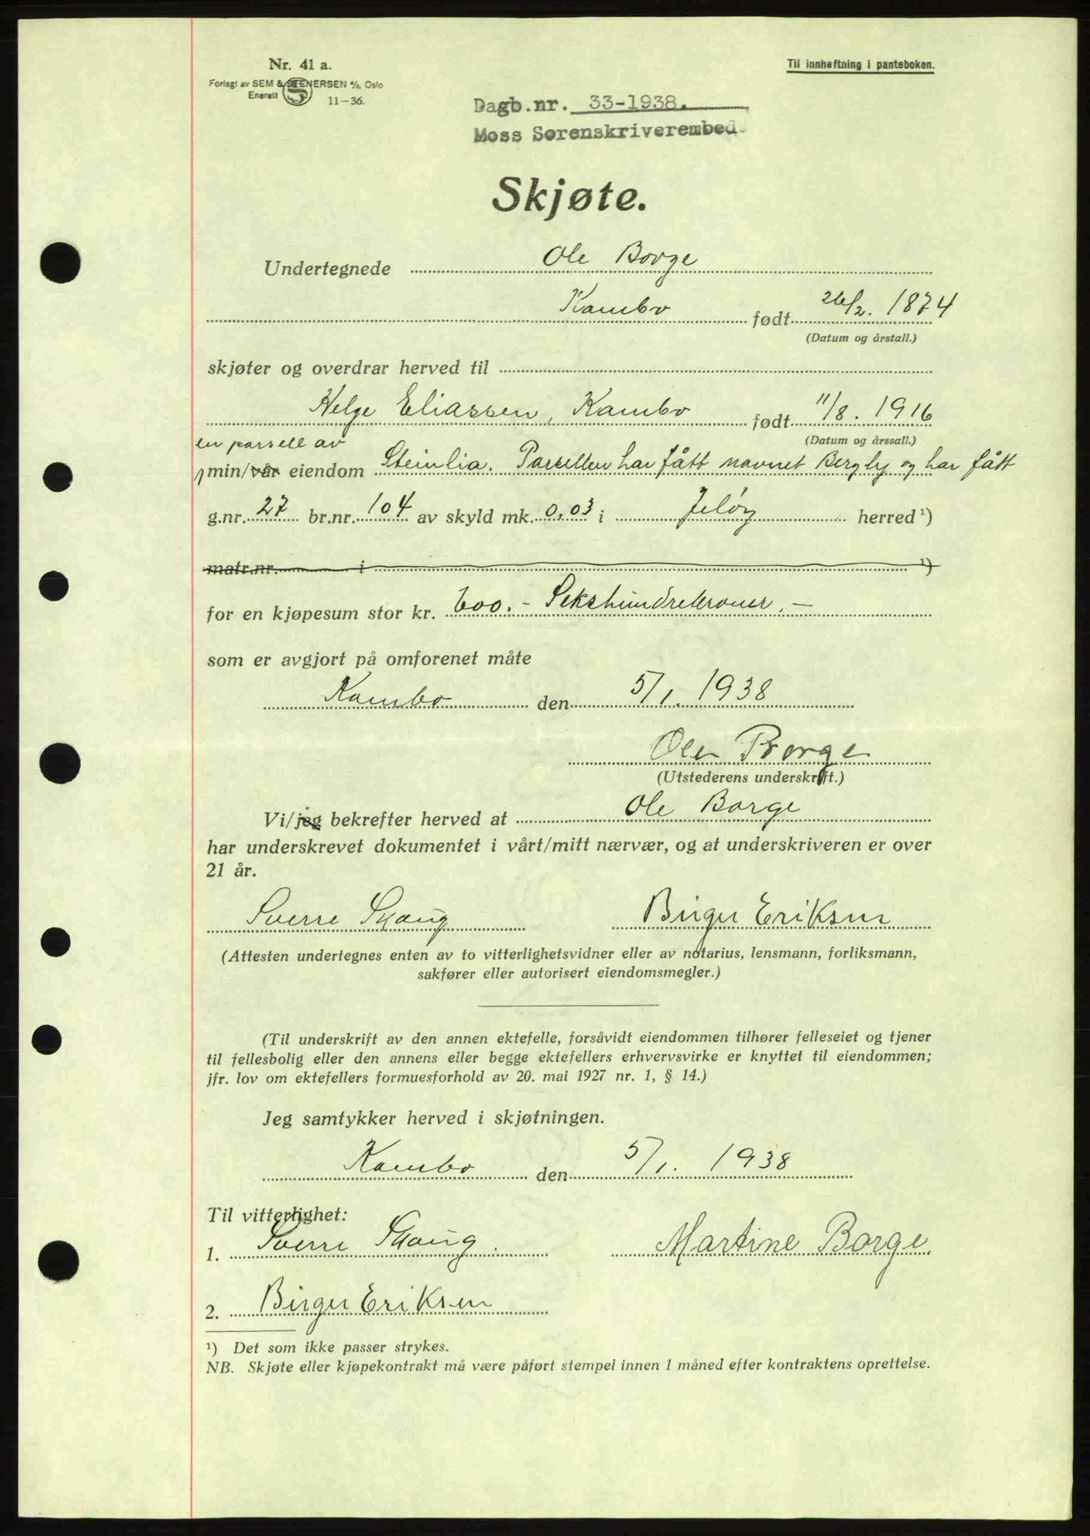 Nr. 41 a.
Forlagt av SEM & STENERSEN A/S, Oslo
Enerett
11-36.
Til innheftning i panteboken.
Dagb.nr. 33-1938.
Moss Sorenskriverembed
Skjøte.
Undertegnede Ole Borge
Kambo født 26/2. 1874
(Datum og årstall.)
skjøter og overdrar herved til
Helge Eliassen, Kambo født 11/8. 1916
(Datum og årssall.)
en parsell av
min/vår eiendom Steinlia. Parsellen har fått navnet Bergly og har fått
g.nr. 27 br.nr. 104 av skyld mk. 0,03 i Jeløy herred ¹)
matr.nr. i ¹)
for en kjøpesum stor kr. 600.- Sekshundrekroner.-
som er avgjort på omforenet måte
Kambo den 5/1. 1938
Ole Borge
(Utstederens underskrift.)
Vi/jeg bekrefter herved at Ole Borge
har underskrevet dokumentet i vårt/mitt nærvær, og at underskriveren er over
21 år.
Sverre Skaug Birger Eriksen
(Attesten undertegnes enten av to vitterlighetsvidner eller av notarius, lensmann, forliksmann,
sakfører eller autorisert eiendomsmegler.)
(Til underskrift av den annen ektefelle, forsåvidt eiendommen tilhører felleseiet og tjener
til fellesbolig eller den annens eller begge ektefellers erhvervsvirke er knyttet til eiendommen;
jfr. lov om ektefellers formuesforhold av 20. mai 1927 nr. 1, § 14.)
Jeg samtykker herved i skjøtningen.
Kambo den 5/1. 1938
Til vitterlighet:
1. Sverre Skaug. Martine Borge
2. Birger Eriksen
¹) Det som ikke passer strykes.
NB. Skjøte eller kjøpekontrakt må være påført stempel innen 1 måned efter kontraktens oprettelse.